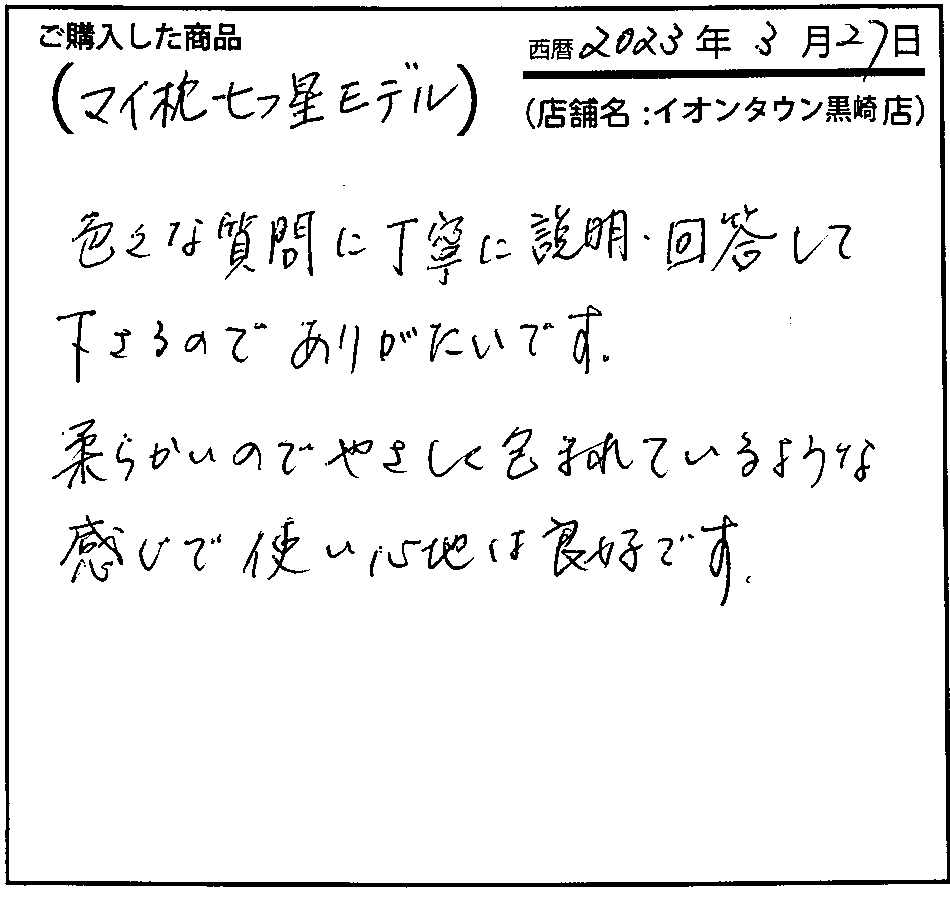 ご購入した商品
西暦 2023 年 3 月 27 日
(マイ枕七つ星モデル)
(店舗名:イオンタウン黒崎店)
色々な質問に丁寧に説明・回答して
下さるのでありがたいです。
柔らかいのでやさしく包まれているような
感じで使い心地は良好です。